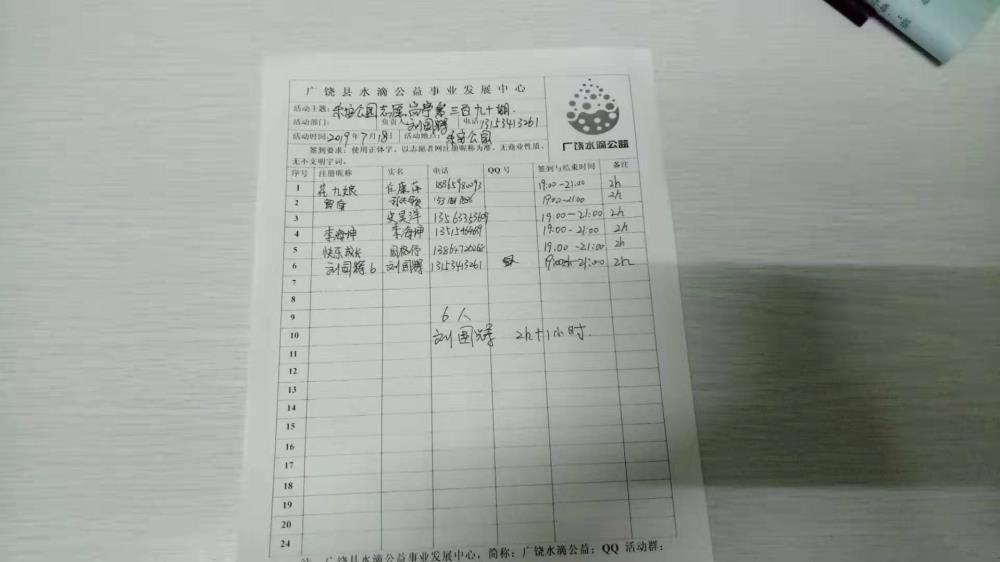 广饶县水滴公益事业发展中心
活动主题: 乐安公园志愿岗亭第三百九十期.
活动部门: 负责人: 刘国辉 电话: 13153413261
活动时间: 2019年7月18日 活动地点: 乐安公园
签到要求:使用正体字,以志愿者网注册昵称为准,无商业性质、
无不文明字词。
广饶水滴公益
序号 注册昵称 实名 电话 QQ号 签到与结束时间 备注
1 花九娘 19:00-21:00 2h
2 19:00-21:00 2h
3 史昊洋 19:00-21:00 2h
4 李海坤 李海坤 19:00-21:00 2h
5 快乐成长 19:00-21:00 2h
6 刘国辉6 刘国辉 13153413261 -21:00 2h
7
8
9 6人
10 刘国辉 2h+1小时.
11
12
13
14
15
16
17
18
19
20
24
广饶县水滴公益事业发展中心,简称:广饶水滴公益;QQ 活动群: